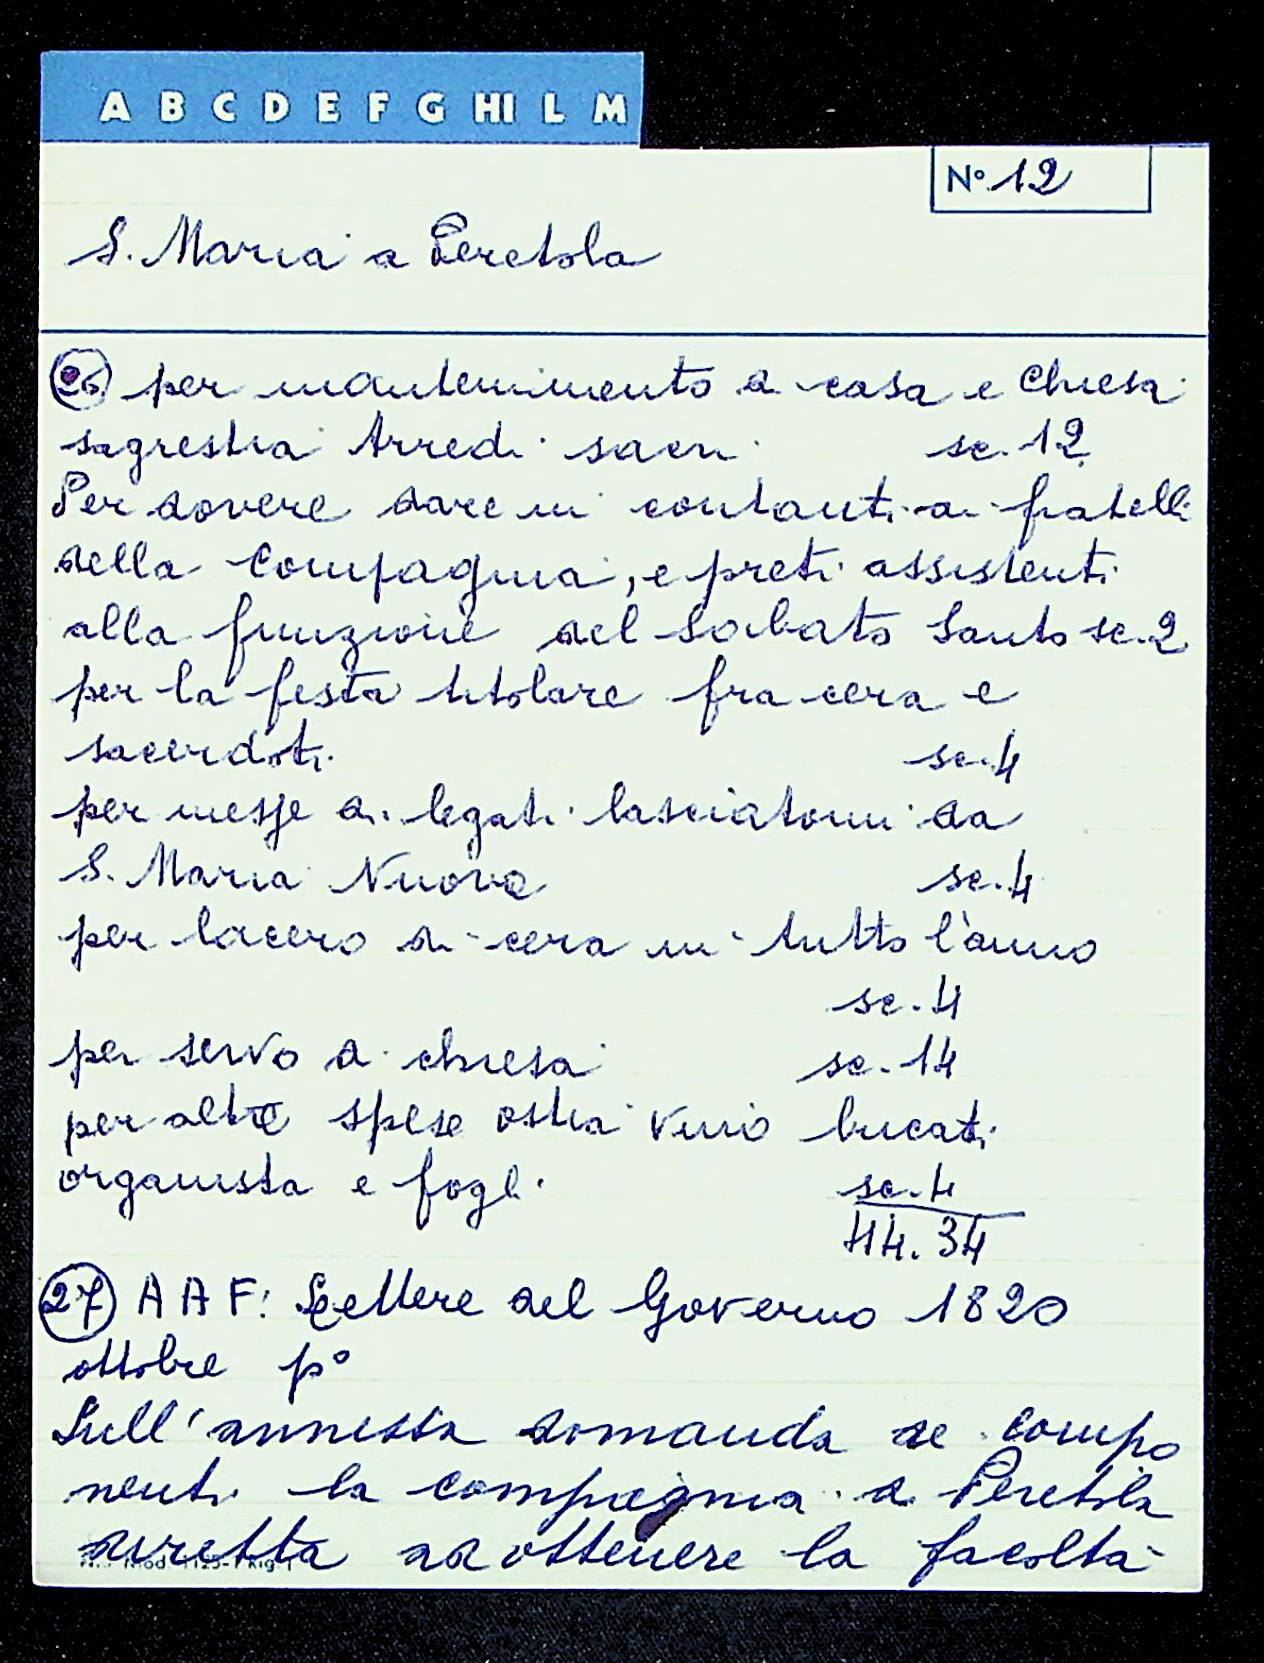 A B C D E F G HI L M
N° 12
S. Maria a Peretola
26 per mantenimento di casa e chiesa
sagrestia Arredi sacri sc. 12
Per dovere dare in contanti ai fratelli
della Compagnia, e preti assistenti
alla funzione del Sabato Santo sc. 2
per la festa titolare fra cera e
sacerdoti sc. 4
per messe di legati lasciatomi da
S. Maria Nuova sc. 4
per lacero di cera in tutto l'anno
sc. 4
per servo di chiesa sc. 14
per altre spese ostia vino bucati
organista e fogli sc. 4
44. 34
27 A A F: Lettere del Governo 1820
ottobre p°
Sull'annessa domanda de compo
nenti la compagnia di Peretola
diretta ad ottenere la facoltà